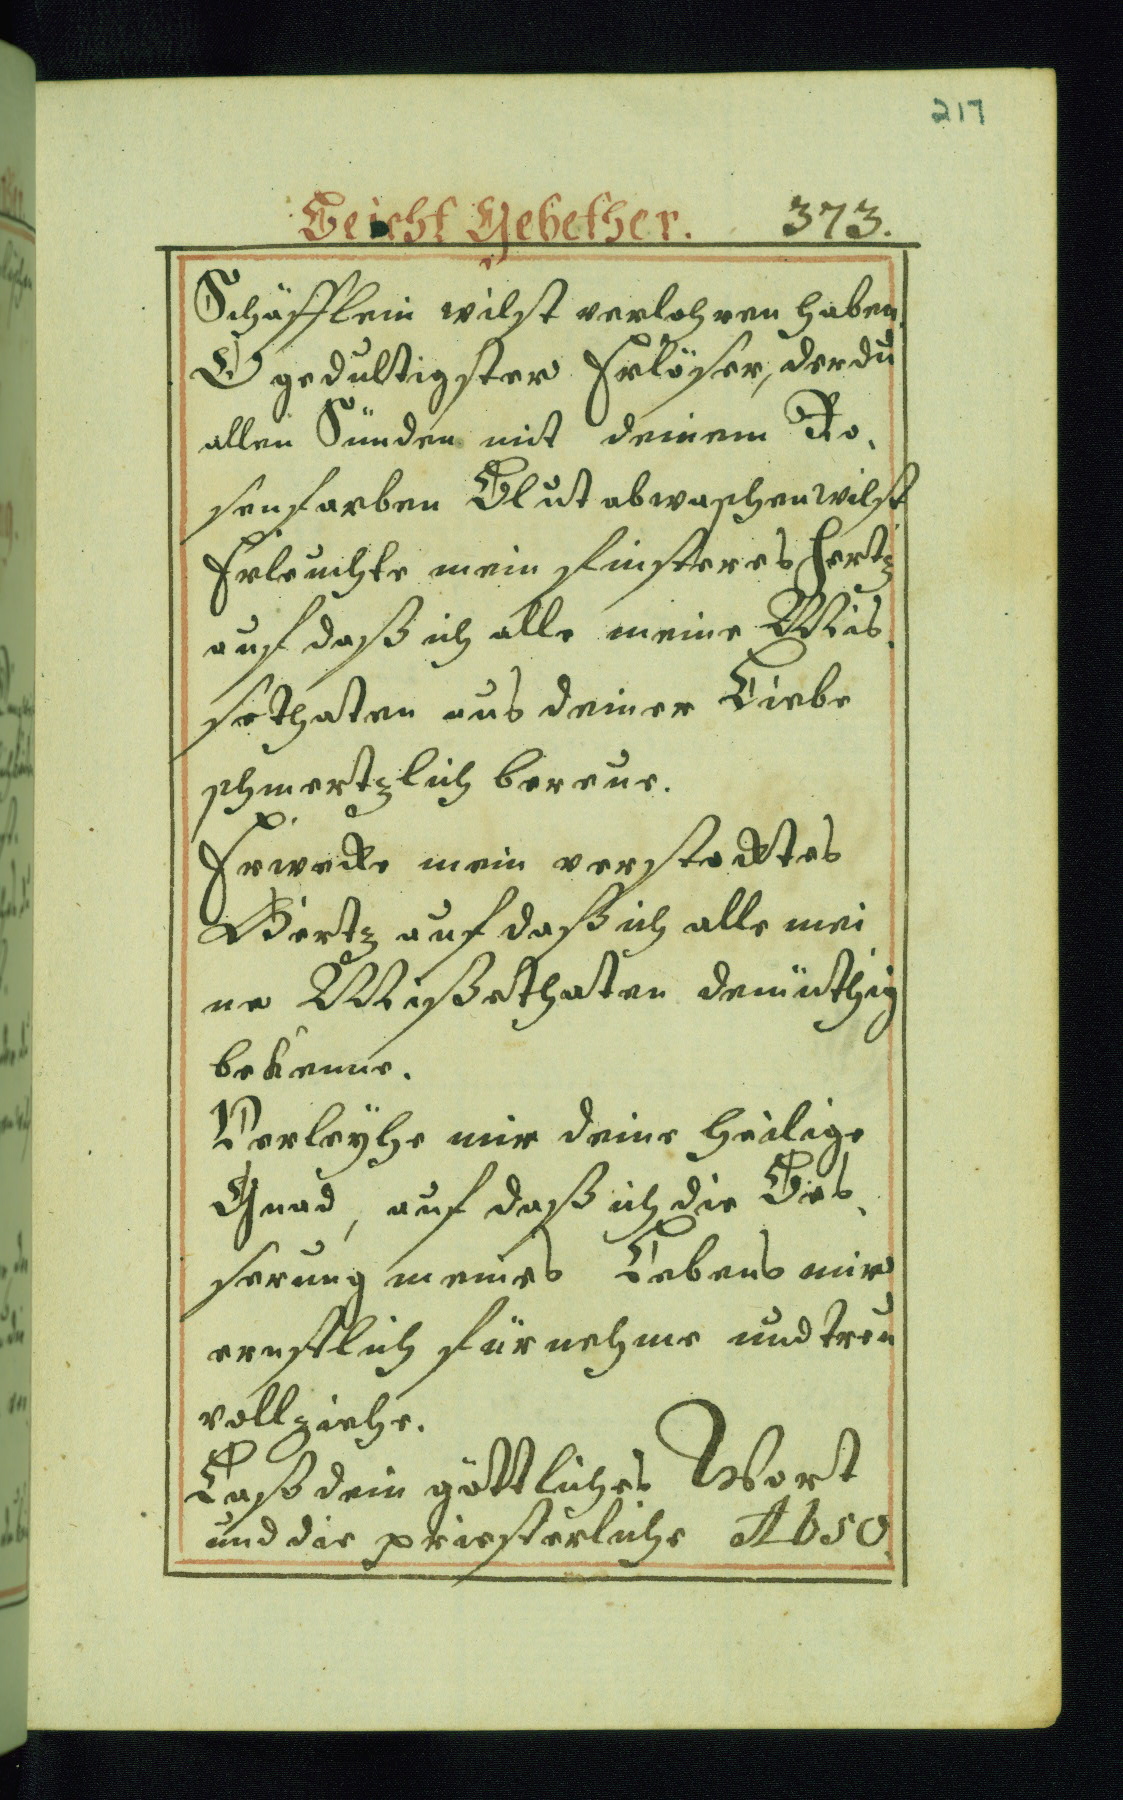 217
Beicht Gebether. 373.
Schäfflein wilst verlohren haben.
O gedultigster Erlöser, der du
allen Sünden mit deinem Ro,
senfarben Blut abwaschen wilst
Erleuchte mein finsteres Hertz
auf daß ich alle meine Mis,
sethaten aus deiner Liebe
schmertzlich bereue.
Erwecke mein verstocktes
Hertz auf daß ich alle mei
ne Mißethaten demüthig
bekenne.
Verleÿhe mir deine heilige
Gnad, auf daß ich die Bes,
serung meines Lebens mir
ernstlich fürnehme und treu
vollziehe.
Laß dein göttliches Wort
und die priesterliche Abso,